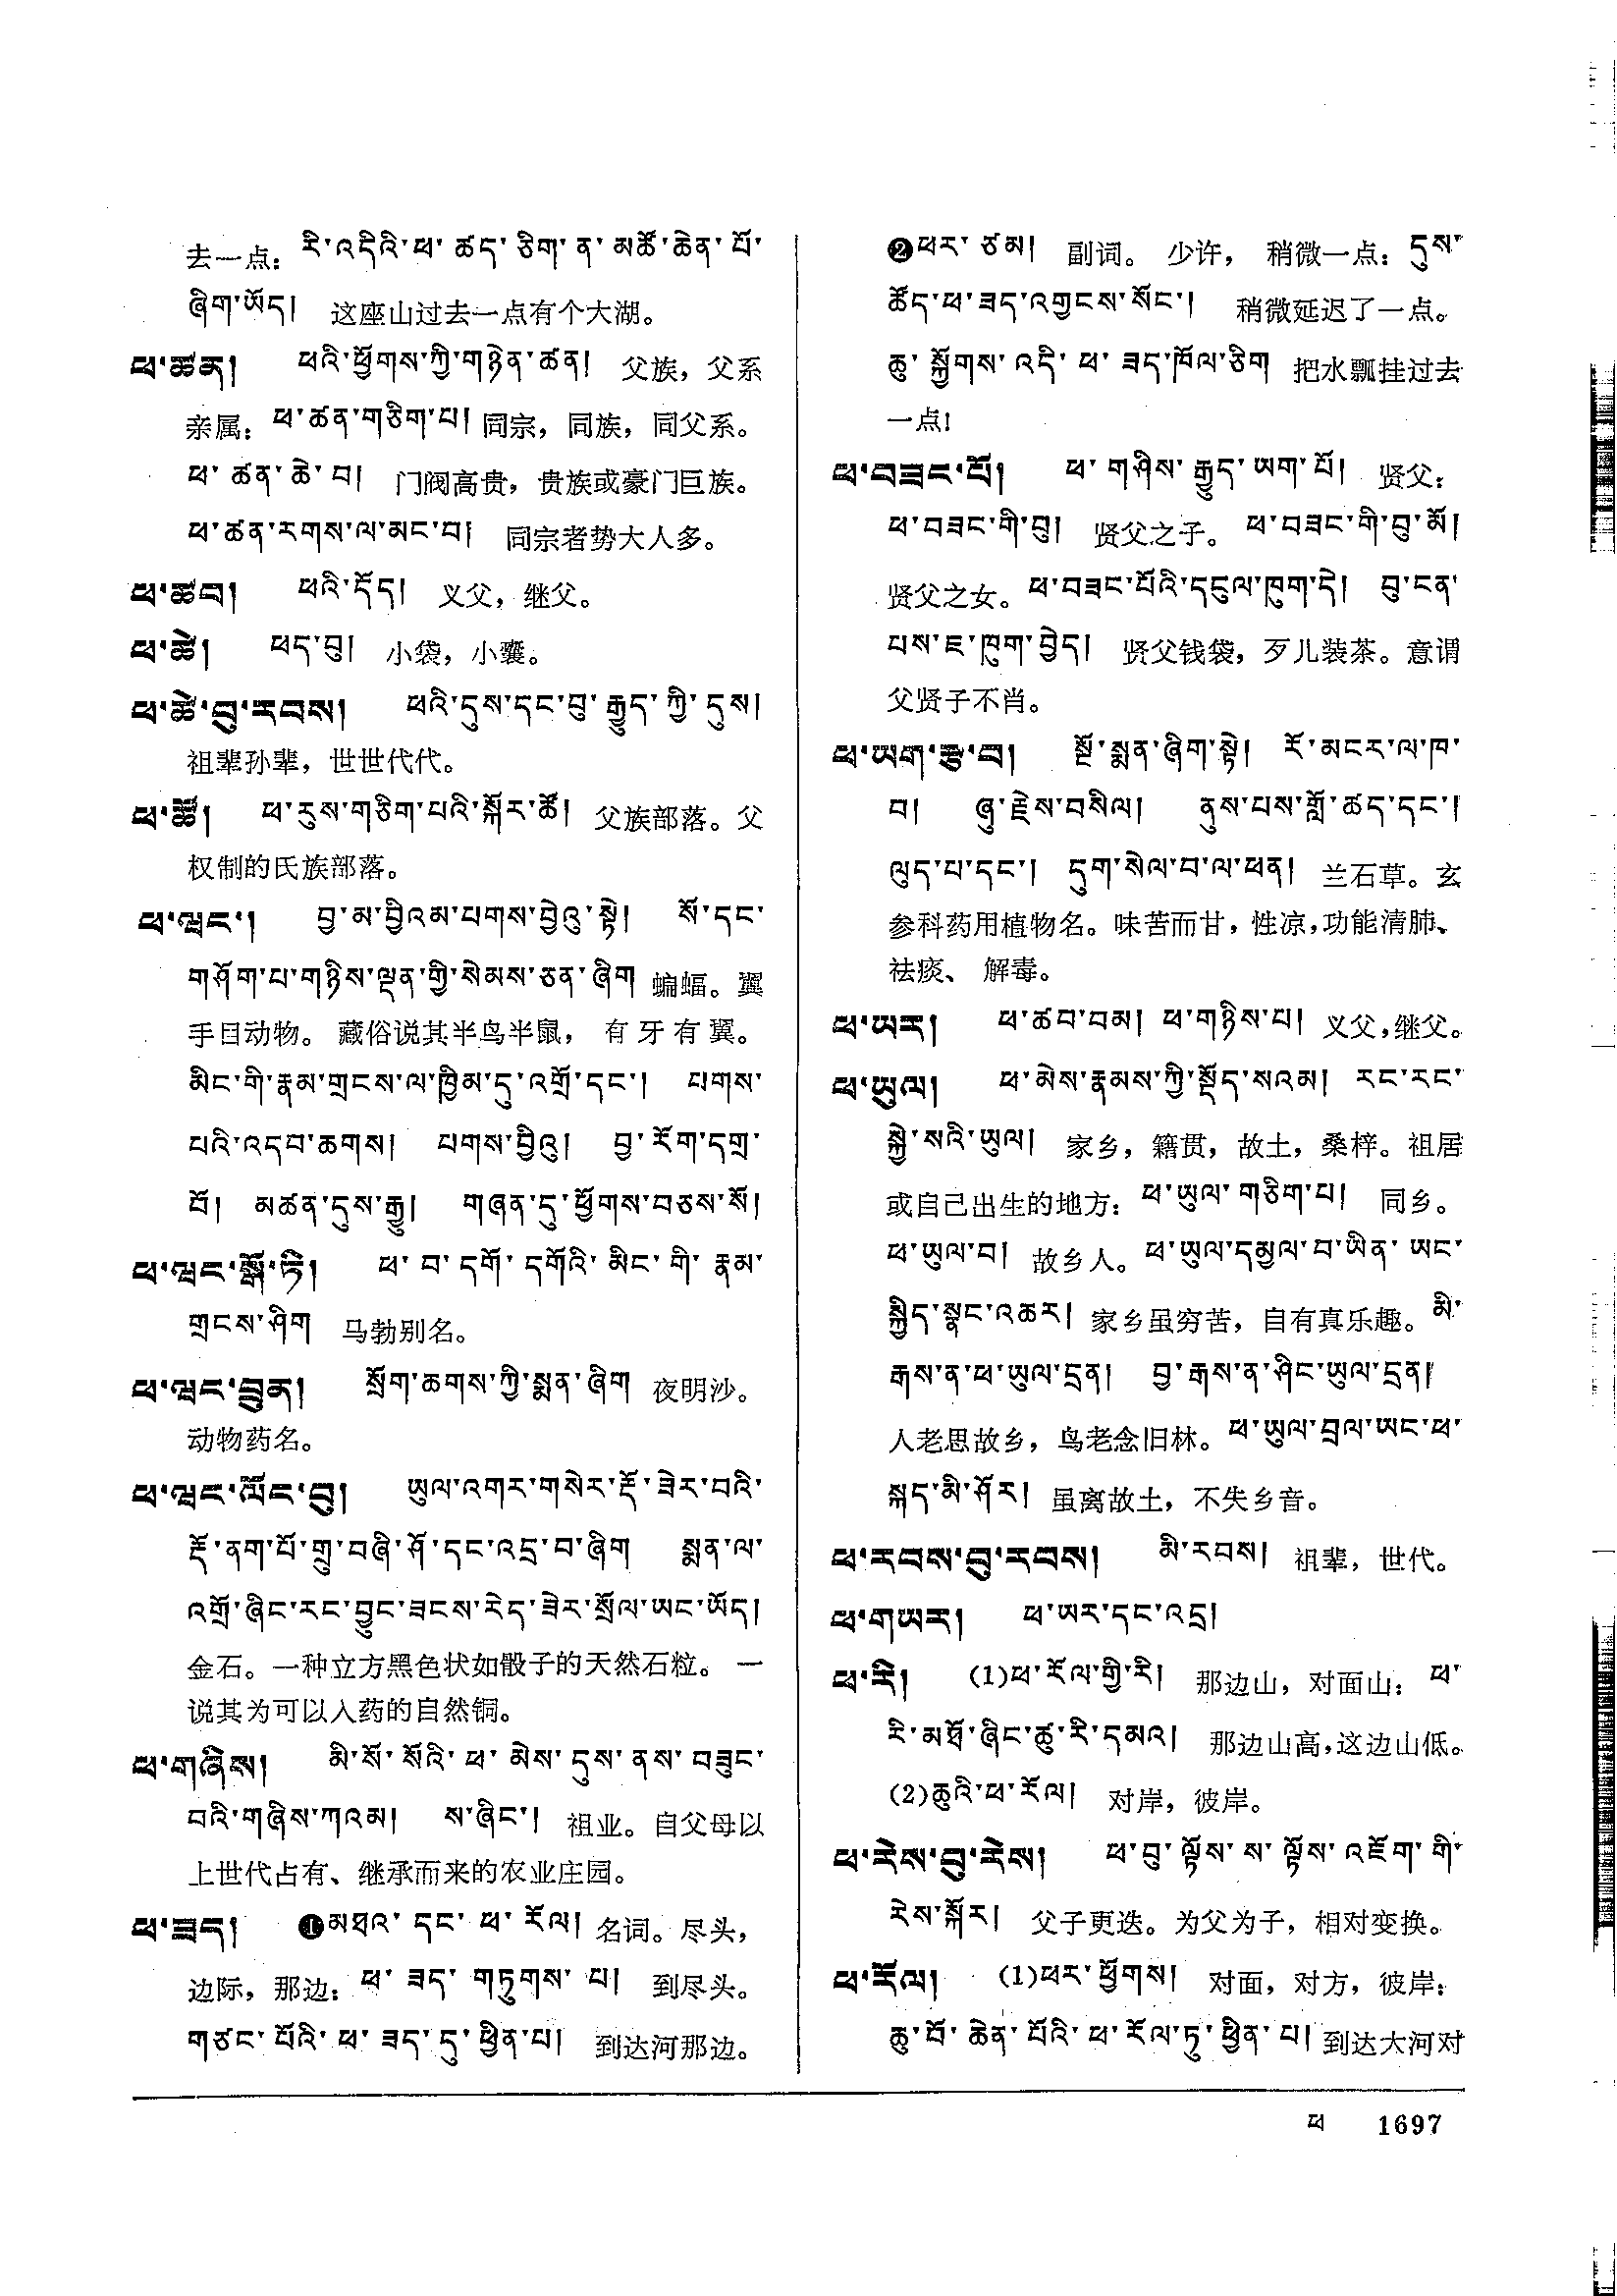 去一点: རི་འདིའི་ཕ་ཚད་ཅིག་ན་མཚོ་ཆེན་པོ་
ཞིག་ཡོད། 这座山过去一点有个大湖。
ཕ་ཚན། ཕའི་ཕྱོགས་ཀྱི་གཉེན་ཚན། 父族，父系
亲属: ཕ་ཚན་གཅིག་པ། 同宗，同族，同父系。
ཕ་ཚན་ཆེ་བ། 门阀高贵，贵族或豪门巨族。
ཕ་ཚན་རགས་ལ་མང་བ། 同宗者势大人多。
ཕ་ཚབ། ཕའི་དོད། 义父，继父。
ཕ་ཚེ། ཕད་བུ། 小袋，小囊。
ཕ་ཚེ་བུ་རབས། ཕའི་དུས་དང་བུ་རྒྱུད་ཀྱི་དུས།
祖辈孙辈，世世代代。
ཕ་ཚོ། ཕ་རུས་གཅིག་པའི་སྐོར་ཚོ། 父族部落。父
权制的氏族部落。
ཕ་ལྭང་། བྱ་མ་བྱིའམ་པགས་བྱེའུ་སྟེ། སོ་དང་
གཤོག་པ་གཉིས་ལྡན་གྱི་སེམས་ཅན་ཞིག 蝙蝠。翼
手目动物。藏俗说其半鸟半鼠，有牙有翼。
མིང་གི་རྣམ་གྲངས་ལ་ཁྱིམ་དུ་འགྲོ་དང་། པགས་
པའི་འདབ་ཆགས། པགས་བྱིའུ། བྱ་རོག་དགྲ་
བོ། མཚན་དུས་རྒྱུ། གཞན་དུ་ཕྱོགས་བཅས་སོ།
ཕ་ལྭང་སྒོ་ཏི། ཕ་བ་དགོ་དགོའི་མིང་གི་རྣམ་
གྲངས་ཤིག 马勃别名。
ཕ་ལྭང་བྲུན། སྲོག་ཆགས་ཀྱི་སྨན་ཞིག 夜明沙。
动物药名。
ཕ་ལྭང་ལོང་བུ། ཡུལ་འགར་གསེར་རྡོ་ཟེར་བའི་
རྡོ་ནག་པོ་གྲུ་བཞི་ཤོ་དང་འདྲ་བ་ཞིག སྨན་ལ་
འགྲོ་ཞིང་རང་བྱུང་ཟངས་རེད་ཟེར་སྲོལ་ཡང་ཡོད།
金石。一种立方黑色状如骰子的天然石粒。一
说其为可以入药的自然铜。
ཕ་གཞིས། མི་སོ་སོའི་ཕ་མེས་དུས་ནས་བཟུང་
བའི་གཞིས་ཀའམ། ས་ཞིང་། 祖业。自父母以
上世代占有、继承而来的农业庄园。
ཕ་ཟད། ❶མཐའ་དང་ཕ་རོལ། 名词。尽头，
边际，那边: ཕ་ཟད་གཏུགས་པ། 到尽头。
གཙང་པོའི་ཕ་ཟད་དུ་ཕྱིན་པ། 到达河那边。
❷ཕར་ཙམ། 副词。少许，稍微一点: དུས་
ཚོད་ཕ་ཟད་འགྱངས་སོང་། 稍微延迟了一点。
ཆུ་སྐྱོགས་འདི་ཕ་ཟད་ཁོལ་ཅིག 把水瓢挂过去
一点!
ཕ་བཟང་པོ། ཕ་གཤིས་རྒྱུད་ཡག་པོ། 贤父:
ཕ་བཟང་གི་བུ། 贤父之子。ཕ་བཟང་གི་བུ་མོ།
贤父之女。ཕ་བཟང་པོའི་དངུལ་ཁུག་དེ། བུ་ངན་
པས་ཇ་ཁུག་བྱེད། 贤父钱袋，歹儿装茶。意谓
父贤子不肖。
ཕ་ཡག་རྩ་བ། སྔོ་སྨན་ཞིག་སྟེ། རོ་མངར་ལ་ཁ་
བ། ཞུ་རྗེས་བསིལ། ནུས་པས་གློ་ཚད་དང་།
ལུད་པ་དང་། དུག་སེལ་བ་ལ་ཕན། 兰石草。玄
参科药用植物名。味苦而甘，性凉，功能清肺、
祛痰、解毒。
ཕ་ཡར། ཕ་ཚབ་བམ། ཕ་གཉིས་པ། 义父，继父。
ཕ་ཡུལ། ཕ་མེས་རྣམས་ཀྱི་སྡོད་སའམ། རང་རང་
སྐྱེ་སའི་ཡུལ། 家乡，籍贯，故土，桑梓。祖居
或自己出生的地方: ཕ་ཡུལ་གཅིག་པ། 同乡。
ཕ་ཡུལ་བ། 故乡人。ཕ་ཡུལ་དམྱལ་བ་ཡིན་ཡང་
སྐྱིད་སྣང་འཆར། 家乡虽穷苦，自有真乐趣。མི་
རྒས་ན་ཕ་ཡུལ་དྲན། བྱ་རྒས་ན་ཤིང་ཡུལ་དྲན།
人老思故乡，鸟老念旧林。ཕ་ཡུལ་བྲལ་ཡང་ཕ་
སྐད་མི་ཤོར། 虽离故土，不失乡音。
ཕ་རབས་བུ་རབས། མི་རབས། 祖辈，世代。
ཕ་གཡར། ཕ་ཡར་དང་འདྲ།
ཕ་རི། (1)ཕ་རོལ་གྱི་རི། 那边山，对面山: ཕ་
རི་མཐོ་ཞིང་ཚུ་རི་དམའ། 那边山高，这边山低。
(2)ཆུའི་ཕ་རོལ། 对岸，彼岸。
ཕ་རེས་བུ་རེས། ཕ་བུ་ལྟོས་ས་ལྟོས་འཇོག་གི་
རེས་སྐོར། 父子更迭。为父为子，相对变换。
ཕ་རོལ། (1)ཕར་ཕྱོགས། 对面，对方，彼岸:
ཆུ་བོ་ཆེན་པོའི་ཕ་རོལ་ཏུ་ཕྱིན་པ། 到达大河对
ཕ 1697